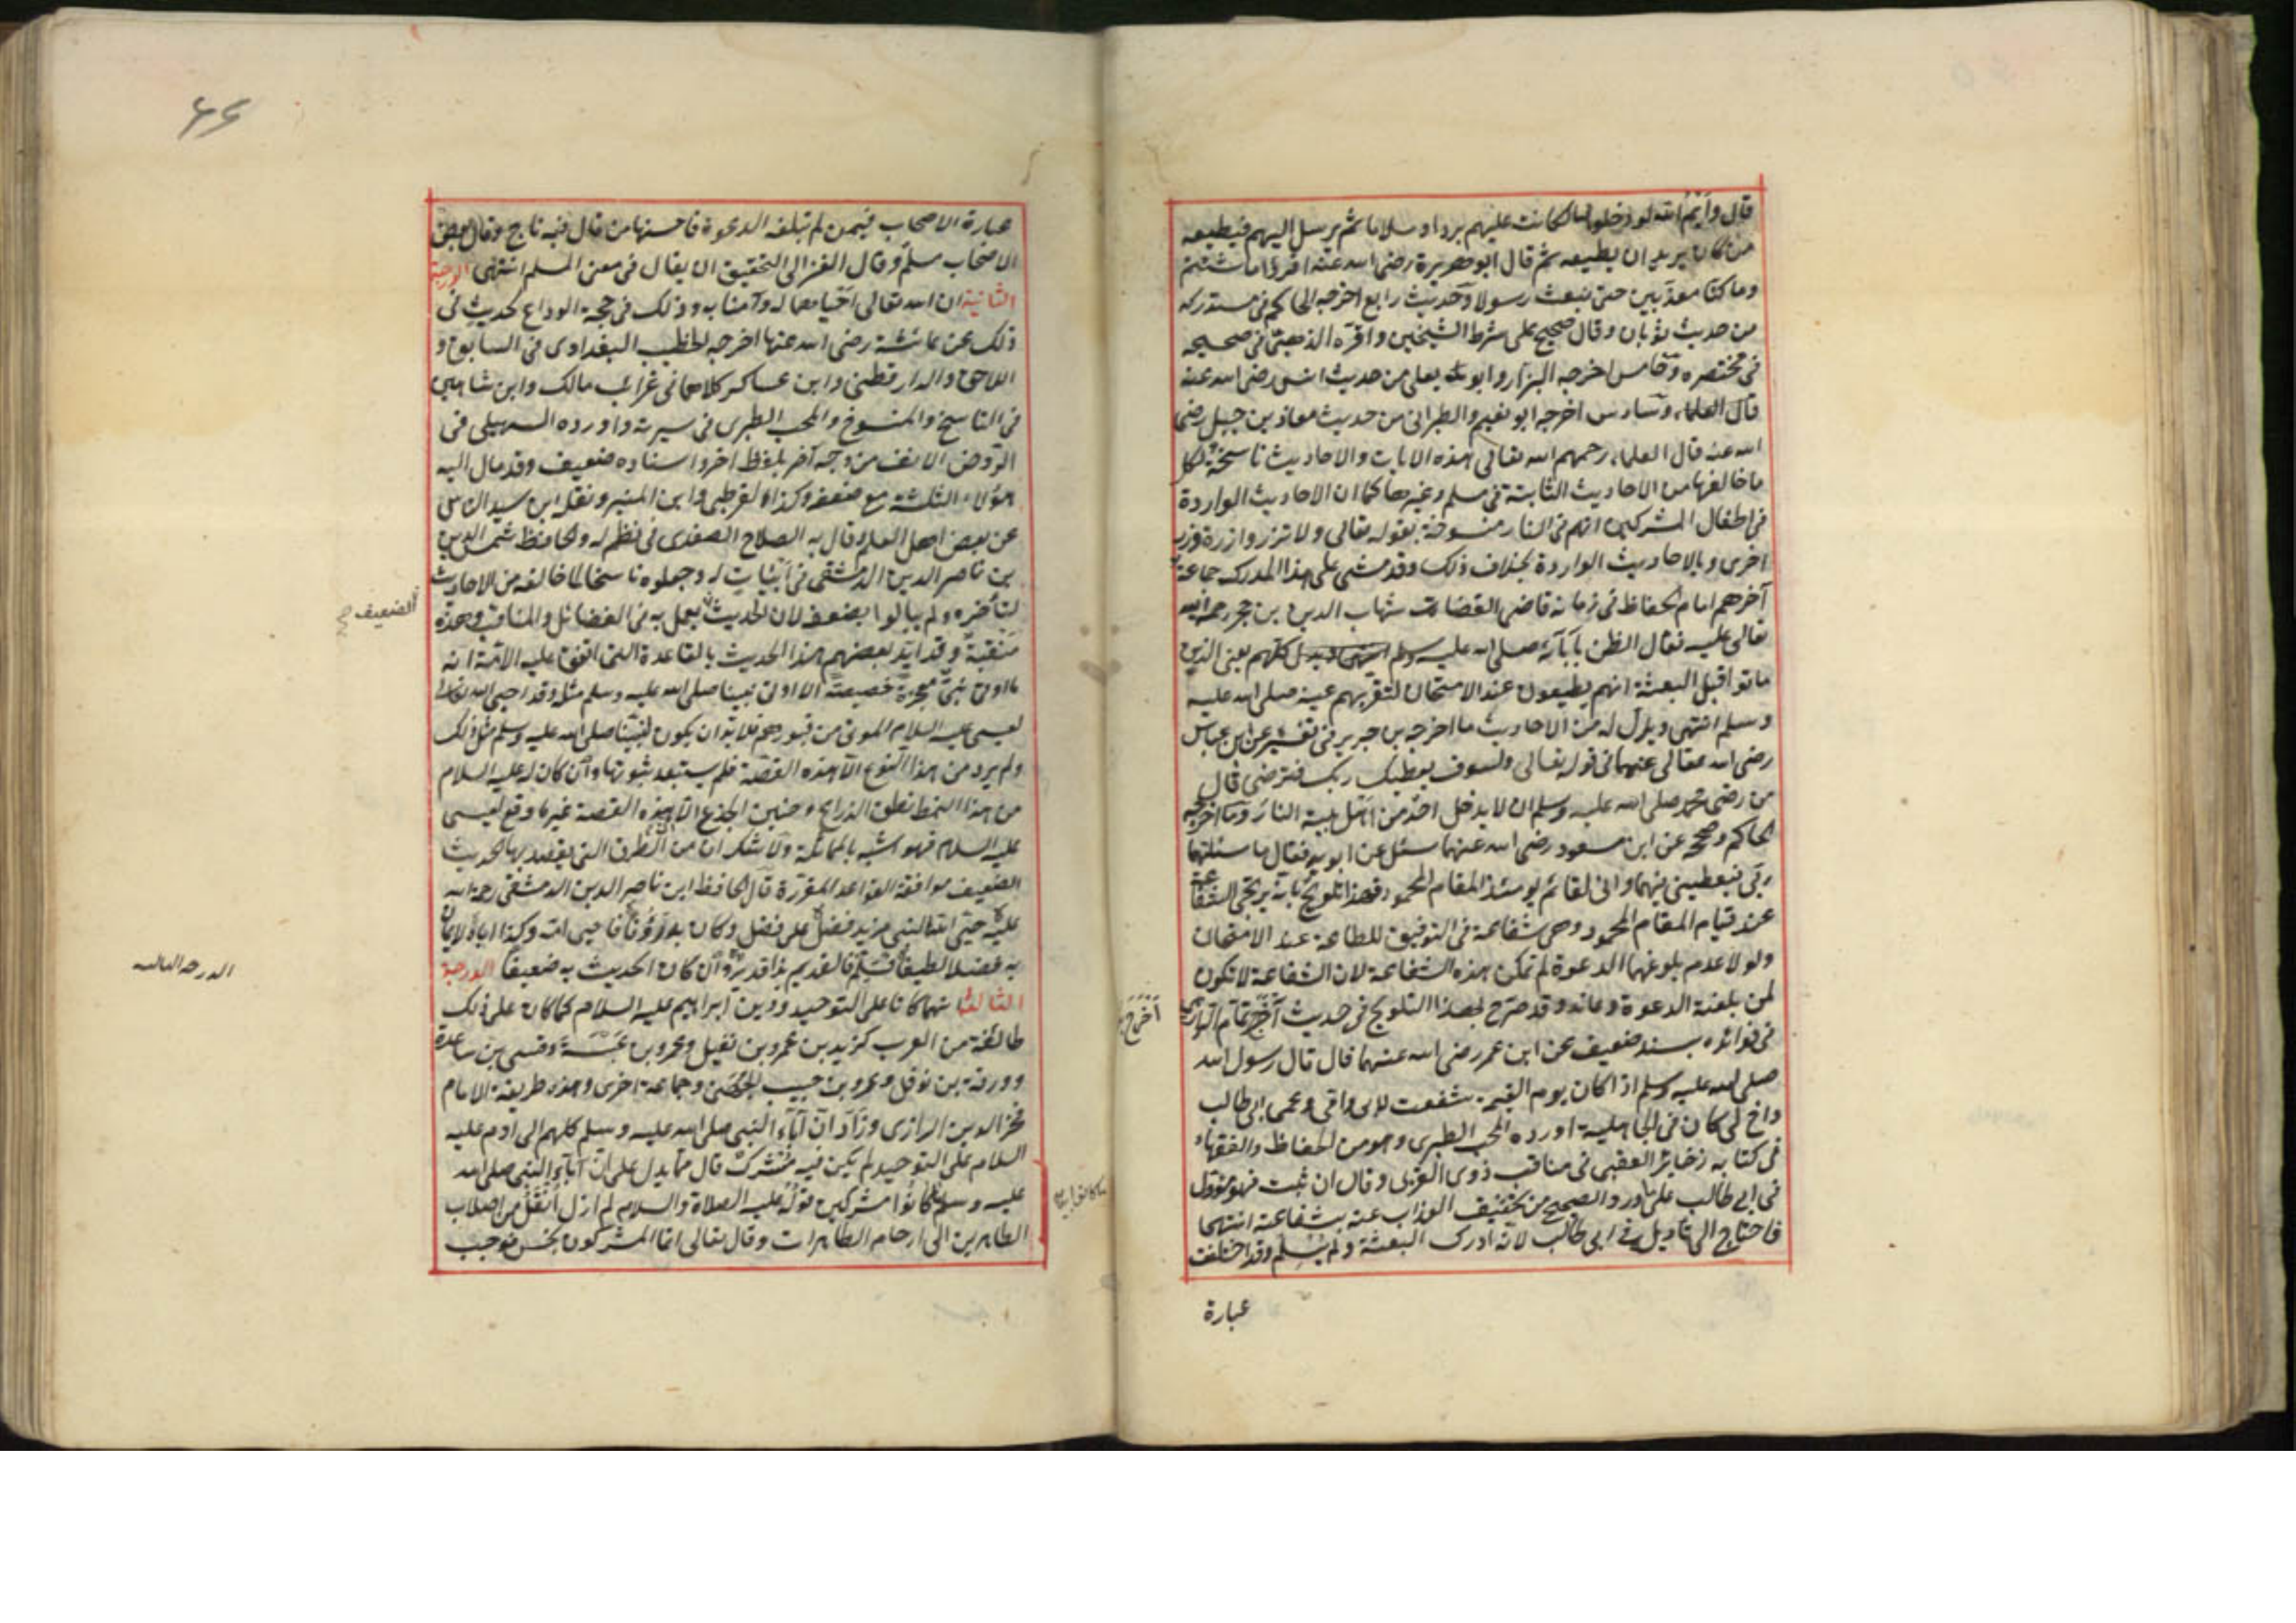 قال وأيم الله لو دخلوها لكانت عليهم بردا وسلاما ثم يرسل اليهم فيطيعه
من كان يريد ان يطيعه ثم قال ابو هريرة رضى الله عنه اقرؤا ما شئتم
وما كنا معذبين حتى نبعث رسولا وحديث رابع اخرجه الحاكم فى مستدركه
من حديث ثوبان وقال صحيح على شرط الشيخين واقره الذهبى فى صحيحه
فى مختصره وخامس اخرجه البزار وابو يعلى من حديث انس رضى الله عنه
قال العلماء وسادس اخرجه ابو نعيم والطبرانى من حديث معاذ بن جبل رضى
الله عنه قال العلماء رحمهم الله تعالى هذه الايات والاحاديث ناسخة لكل
ما خالفها من الاحاديث الثابتة فى مسلم وغيرها كما ان الاحاديث الواردة
فى اطفال المشركين انهم فى النار منسوخة بقوله تعالى ولا تزر وازرة وزر
اخرى وبالاحاديث الواردة بخلاف ذلك وقد مشى على هذا المدرك جماعة
آخرهم امام الحفاظ فى زمانه قاضى القضات شهاب الدين بن حجر رحمه الله
تعالى عليه فقال الظن بآبائه صلى الله عليه وسلم كلهم يعنى الذين
ماتوا قبل البعثة انهم يطيعون عند الامتحان لتقر بهم عينه صلى الله عليه
وسلم انتهى ويدل له من الاحاديث ما اخرجه بن جرير فى تفسيره عن ابن عباس
رضى الله تعالى عنهما فى قوله تعالى ولسوف يعطيك ربك فترضى قال
من رضى محمد صلى الله عليه وسلم ان لا يدخل احد من اهل بيته النار وما اخرجه
الحاكم وصححه عن ابن مسعود رضى الله عنهما سئل عن ابويه فقال ما سئلتهما
ربى فيعطينى فيهما وانى لقائم يومئذ المقام المحمود فهذا تلويح بانه يرتجى الشفاعة
عند قيام المقام المحمود وهى شفاعة فى التوفيق للطاعة عند الامتحان
ولولا عدم بلوغهما الدعوة لم تمكن هذه الشفاعة لان الشفاعة لا تكون
لمن بلغته الدعوة وعاند وقد صرح لهذا التلويح فى حديث آخر تمام الرازى
أخرج
فى فوائده بسند ضعيف عن ابن عمر رضى الله عنهما قال قال رسول الله
صلى الله عليه وسلم اذا كان يوم القيمة شفعت لابى وامى وعمى ابى طالب
واخ لى كان فى الجاهلية اورده المحب الطبرى وهو من الحفاظ والفقهاء
فى كتابه ذخائر العقبى فى مناقب ذوى القربى وقال ان ثبت فهو مؤول
فى ابى طالب على ما ورد والصحيح من تخفيف العذاب عنه بشفاعته انتهى
فاحتاج الى تاويل فى ابى طالب لانه ادرك البعثة ولم يسلم وقد اختلفت
عبارة
عبارة الاصحاب فيمن لم تبلغه الدعوة فاحسنها من قال فيه ناج وقال بعض
الاصحاب مسلم وقال الغزالى التحقيق ان يقال فى معنى المسلم انتهى الدرجة
الثانية ان الله تعالى احياهما له وآمنا به وذلك فى حجة الوداع لحديث فى
ذلك عن عائشة رضى الله عنها اخرجه الخطيب البغدادى فى السابق و
اللاحق والدارقطنى وابن عساكر كلاهما فى غرائب مالك وابن شاهين
فى الناسخ والمنسوخ والمحب الطبرى فى سيرته واورده السهيلى فى
الروض الانف من وجه آخر بلفظ اخر واسناده ضعيف وقد مال اليه
هؤلاء الثلثة مع ضعفه وكذا القرطبى وابن المنير ونقله ابن سيد الناس
عن بعض اهل العلم وقال به الصلاح الصفدى فى نظم له والحافظ شمس الدين
بن ناصر الدين الدمشقى فى ابيات له وجعلوه ناسخا لما خالفه من الاحاديث
لتأخره ولم يبالوا بضعفه لان الحديث يعمل به فى الفضائل والمناقب وهذه
الضعيف صح
منقبة وقد ايد بعضهم هذا الحديث بالقاعدة التى اتفق عليه الائمة انه
ما اوتى نبى معجزة خصيصة الا اوتى نبينا صلى الله عليه وسلم مثله وقد احيى الله تعالى
لعيسى عليه السلام الموتى من قبورهم فلا بد ان يكون لنبينا صلى الله عليه وسلم مثل ذلك
ولم يرد من هذا النوع الا هذه القصة فلم يستبعد ثبوتها وان كان له عليه السلام
من هذا النمط نطق الذراع وحنين الجذع الا ان هذه القصة غير ما وقع لعيسى
عليه السلام فهو اشبه بالمماثلة ولا شك ان من الطرق التى يعتضد بها الحديث
الضعيف موافقة القواعد المقررة قال الحافظ ابن ناصر الدين الدمشقى رحمة الله
عليه حبى الله النبى مزيد فضل على فضل وكان به رؤفا فاحيى امه وكذا اباه لايمان
به فضلا لطيفا فسلم فالقديم بذا قدير وان كان الحديث به ضعيفا الدرجة
الدرجه الثالثه
الثالثة انهما كانا على التوحيد ودين ابراهيم عليه السلام كما كان على ذلك
طائفة من العرب كزيد بن عمرو بن نفيل وعمرو بن عبسة وقس بن ساعدة
وورقة بن نوفل وعمرو بن حبيب الجهنى وجماعة اخرى وهذه طريقة الامام
فخر الدين الرازى وزاد ان آباء النبى صلى الله عليه وسلم كلهم الى ادم عليه
السلام على التوحيد لم يكن فيه مشرك قال مما يدل على ان آباء النبى صلى الله
عليه وسلم ما كانوا مشركين قوله عليه الصلاة والسلام لم ازل أنقل من اصلاب
الطاهرين الى ارحام الطاهرات وقال تعالى انما المشركون نجس فوجب